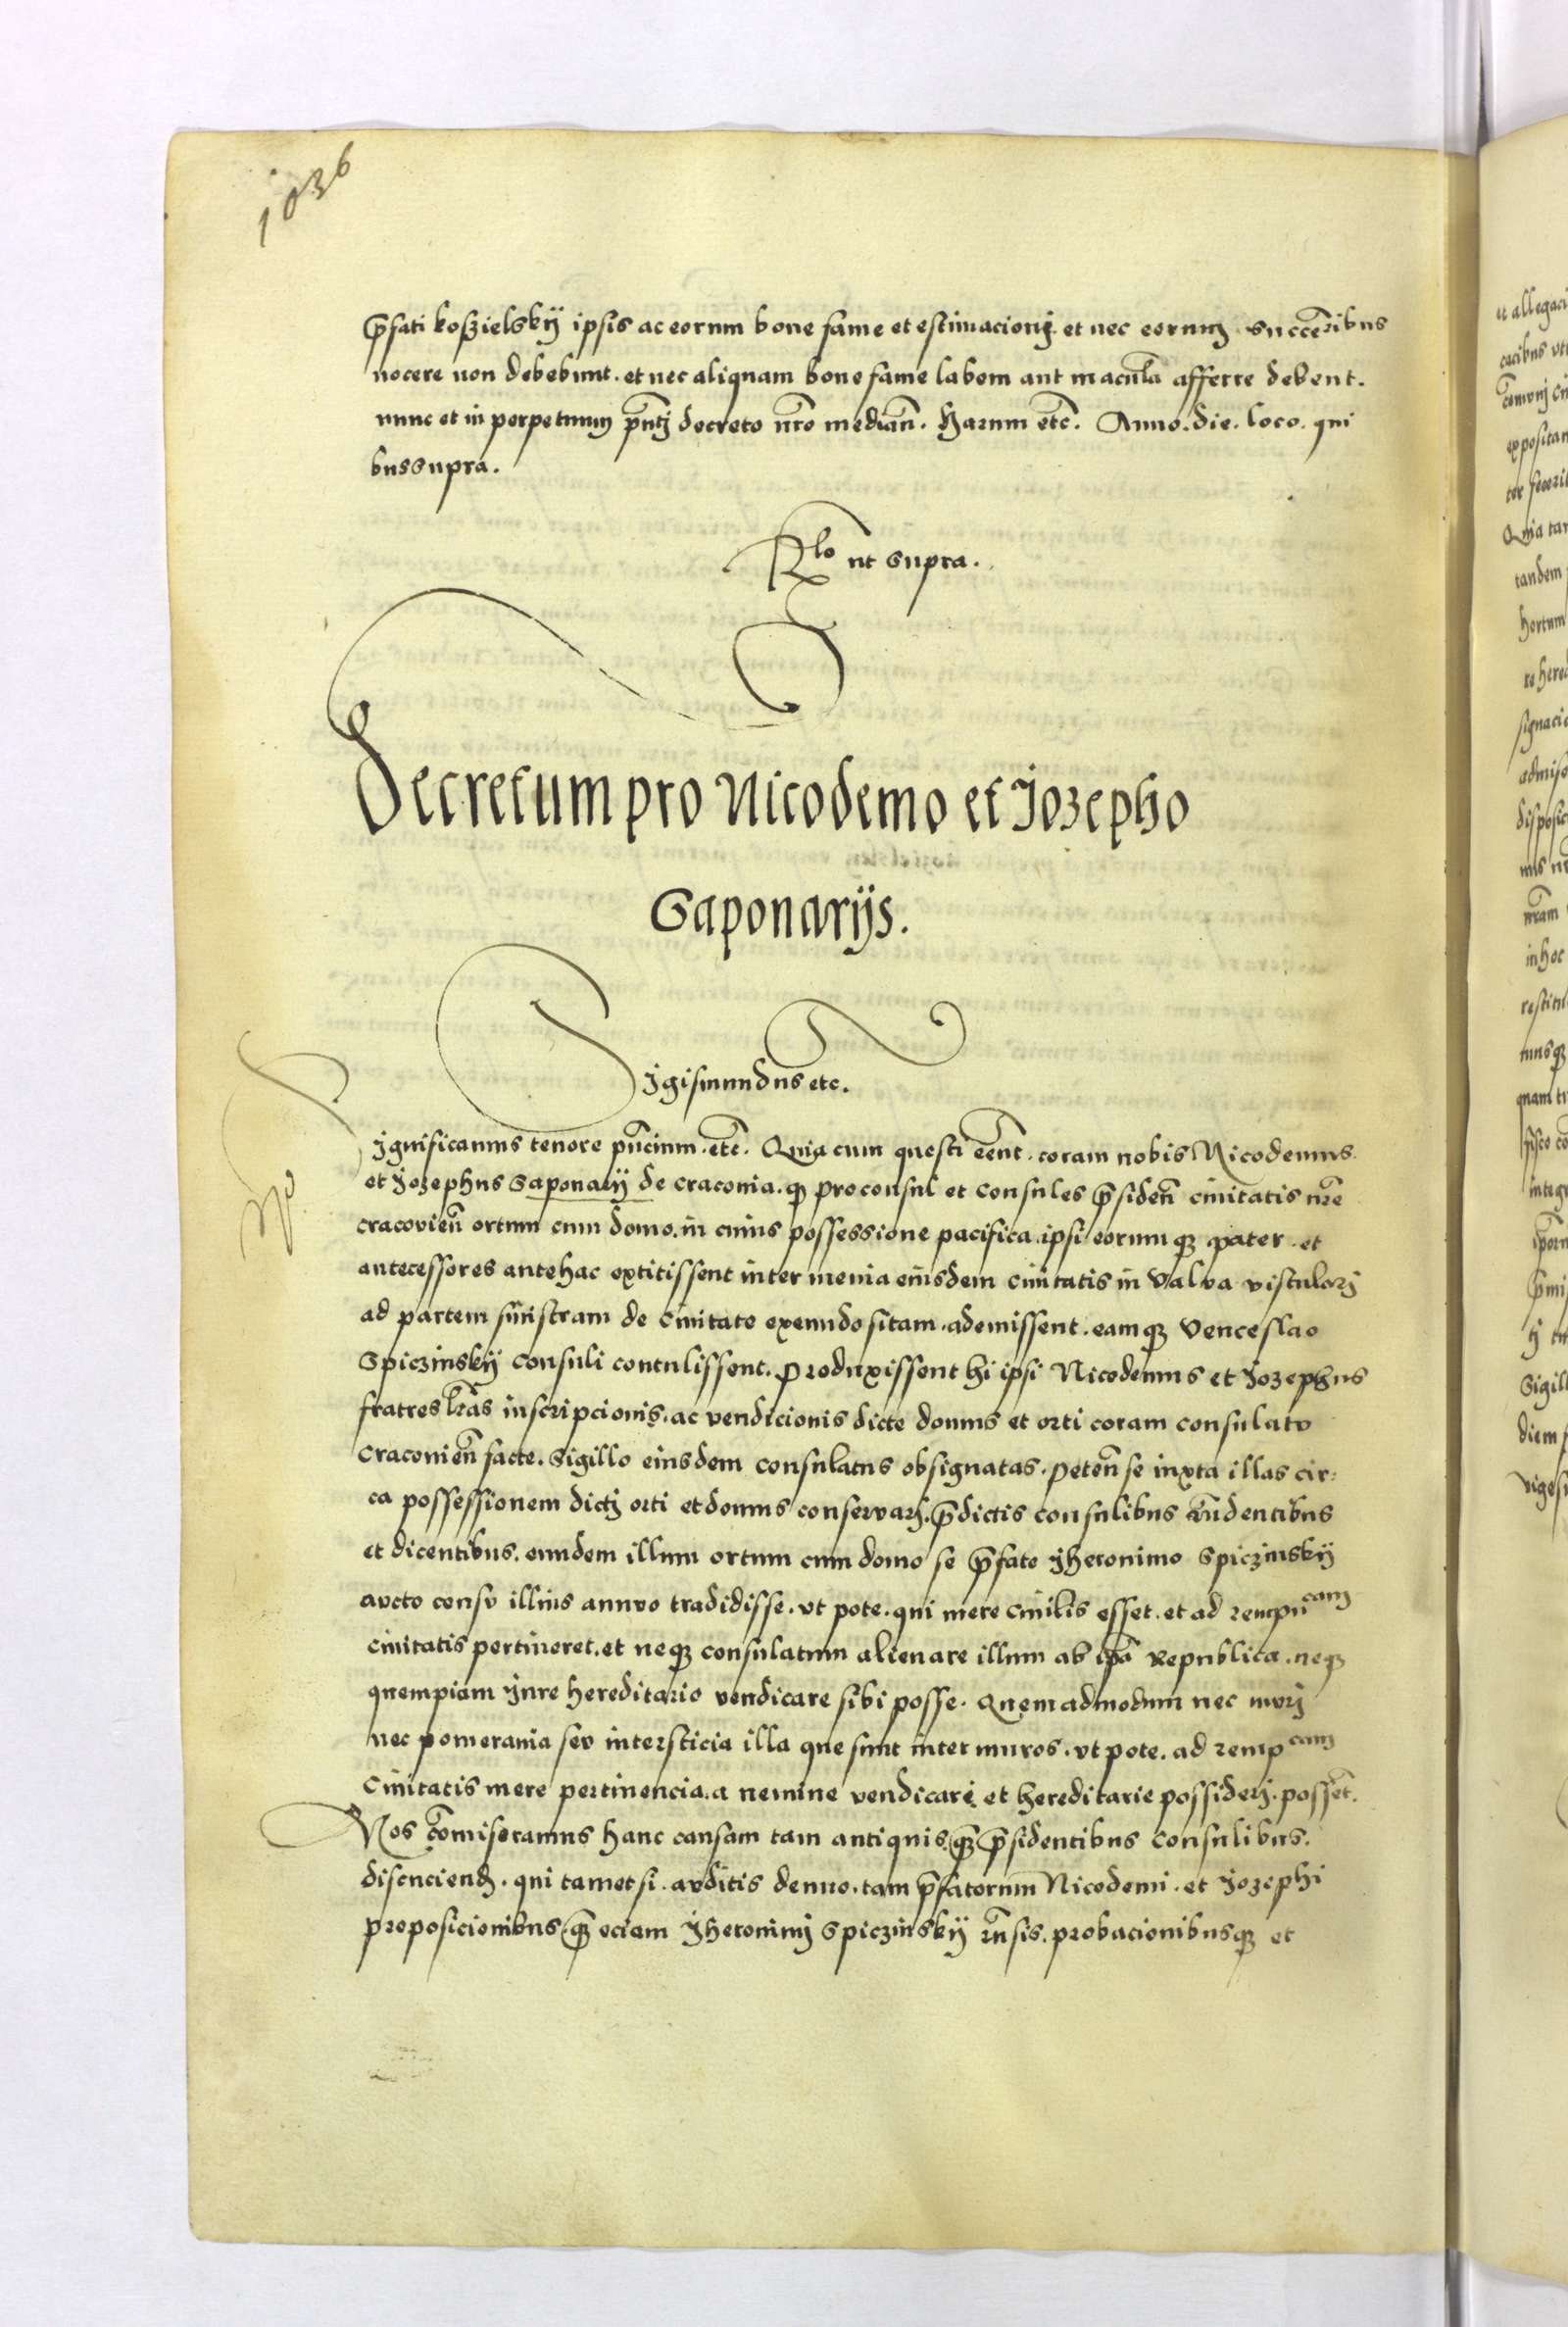 1036
p̄fati koszielskij ipsis ac eorum bone fame et estimacionj et nec eorum succ̄ribus
nocere non debebunt. et nec aliquam bone fame labem aut macula̅ afferre debent.
nunc et in perpetuum pn̄tj decreto nr̄o median̄. Harum etc̄. Anno. die. loco. qui
bus supra.
Rlo ut supra.
Decretum pro Nicodemo et Jozepho
Saponarijs.
Sigismundus etc.
Significamus tenore pn̄cium. etc̄. Quia cum questi eēnt. coram nobis Nicodemus
et Jozephus Saponarij de cracouia. qz proconsul et consules p̄siden̄ ciuitatis nr̄e
cracouien̄ ortum cum domo. in cuius possessione pacifica. ipsi eorumqz pater. et
antecessores antehac extitissent inter menia eiusdem ciuitatis in valua vistularj
ad partem sinistram de ciuitate exeundo sitam. ademissent. eamqz Venceslao
Spiczinskij consuli contulissent. Produxissent hi ipsi Nicodemus et Jozephus
fratres lr̄as inscripcionis. ac vendicionis dicte domus et orti coram consulatu
cracouien̄ facte. Sigillo eiusdem consulatus obsignatas. peten̄ se iuxta illas cir:
ca possessionem dictj orti et domus conseruarj. p̄dictis consulibus rn̄dentibus
et dicentibus. eundem illum ortum cum domo se p̄fato Jheronimo Spiczinskij
aucto censu illius annuo tradidisse. vt pote. qui mere ciuilis esset. et ad rempucam
ciuitatis pertineret. et neqz consulatum alienare illum ab ipā Republica. neqz
quempiam Jure hereditario vendicare sibi posse. Quemadmodum nec murj
nec pomerania seu intersticia illa que sunt inter muros. vt pote. ad rempcam
Ciuitatis mere pertinencia. a nemine vendicari et hereditarie possiderj. possēt.
Nos cōmiseramus hanc causam tam antiquis qz p̄sidentibus consulibus.
discuciend. qui tametsi. auditis denuo. tam p̄fatorum Nicodemi. et Jozephi
proposicionibus qz eciam Jheronimj Spiczinskij rn̄sis. probacionibusqz et